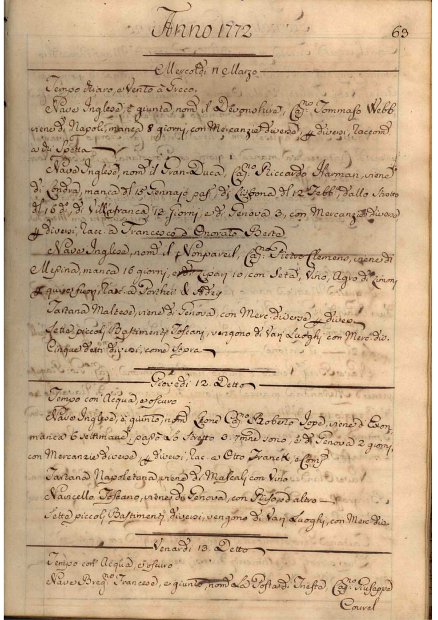 Anno 1772
63
Mercoldì 11 Marzo
Tempo chiaro, e Vento à Greco,
Nave Inglese, è giunta, nom.ta il Devonshire, Cap.no Tommaso Webb
viene di Napoli, manca 8 giorni, con Mercanzie diverse, p diversi, raccom.
a di Spetta
Nave Inglese, nom.ta il Gran Duca Cap.no Riccardo Harman, viene
di Londra, manca dal 15 Gennajo, pas. di Lisbona dal 12 Febb. dallo Stretto
dal 16 d.o, di Villafranca 13 giorni, e di Genova 3, con Mercanzie diverse
p diversi, racc. a Francesco e Onorato Berte
Nave Inglese, nom.ta il Nonpareil Cap.no Pietro Clemens, viene di
Messina, manca 16 giorni, e di Lipari 10, con Seta, Vino, Agro di Limoni
racc. a Porther &
Tartana Maltese, viene di Genova, con Merc. diverse p diversi
Sette piccoli Bastimenti Toscani, vengono di Vari Luoghi, con Merc. div.
Cinque detti diversi, come Sopra
Giovedì 12 Detto
Tempo con Acqua, e oscuro
Nave Inglese, è giunta, nom. Leone Cap.no Roberto Jope, viene d
manca 6 settimane, passò lo Stretto 3 sono, e di Genova 2 giorni,
con Mercanzie diverse p diversi, rac. a Otto Franck e Comp.
Tartana Napoletana, viene di Mascali con Vino
Navicello Toscano, viene di Genova, con Risi ed altro
Sette piccoli Bastimenti diversi, vengono di Vari Luoghi, con Merc. div.
Venardì 13 Detto
Tempo con Acqua, e oscuro
Nave Francese, è giunta, nom. la Cap.no Giuseppe
Couvel